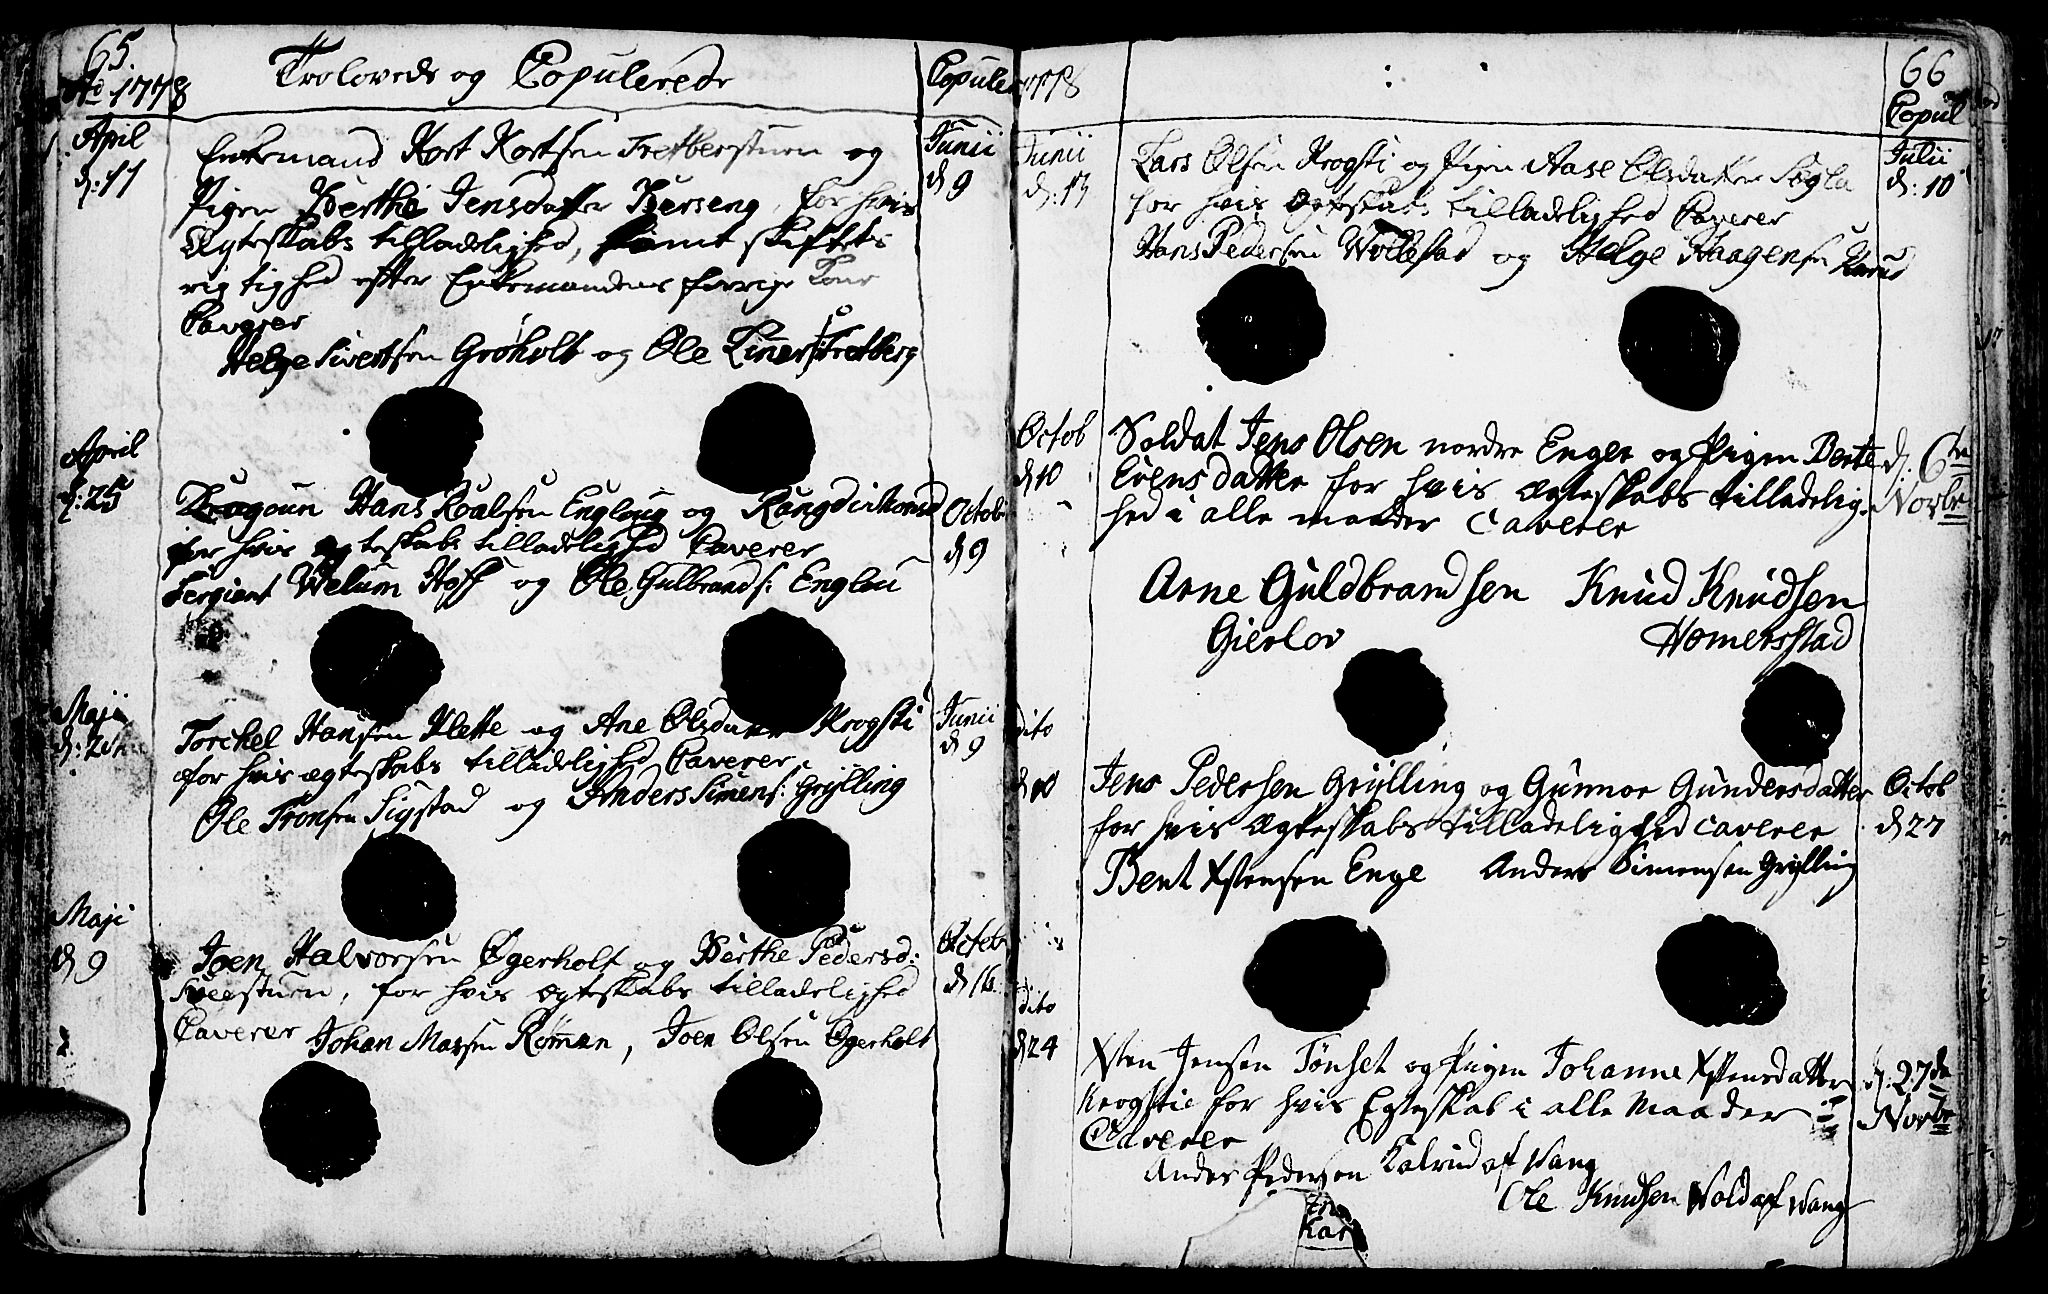 65.
Ao 1778
Troloveds og Copulerede
Copuler
April
d: 11
Enkemand Kort Kortsen Tretbersturn og
Pigen Berthe Jensdatter Berseng, for hvis
Ægteskabs tilladelighed, samt skiftets
rigtighed efter Enkemandens forrige Kone
Caverer
Helge Sivertsen Grøholt og Ole Einers: Tretberg
Junii
d 9
April
d: 25
Dragoun Hans Roalsen Engloug og
for hvis ægteskabs tilladelighed Caverer
Sergiant Welum Hoff og Ole Gulbrands: Englou
Octob
d 9
Maji
d: 2den
Torchel Hansen Klette og Ane Olsdatter Krogsti
for hvis ægteskabs tilladelighed Caverer
Ole Tronsen Sigstad og Anders Simens: Grylling
Junii
d 9
Maji
d 9
Joen Halvorsen Øgerholt og Berthe Pedersd:
Sveesturn, for hvis ægteskabs tilladelighed
Caverer Johan Marsen Røman, Joen Olsen Øgerholt
Octob
d 16
1778
66
Copul
Junii
d: 13
Lars Olsen Krogsti og Pigen Aase Olsdatter Søgla
for hvis Ægteskabs tilladelighed Caverer
Hans Pedersen Wollestad og Helge Haagensen
Julii
d: 10
Octob
d 10
Soldat Jens Olsen nordre Enger og Pigen Berte
Evensdatter for hvis Ægteskabs tilladelig-
hed i alle maader Caverer
Arne Guldbrandsen Knud Knudsen
Gierlov Homersstad
d: 6te
Novbr
dito
d 10
Jens Pedersen Grylling og Gunnor Gundersdatter
for hvis Ægteskabs tilladelighed caverer
Bent Xstensen Enge Anders Simensen Grylling
Octob
d 27
dito
d 24
Xsten Jensen Tønset og Pigen Johanne Xstensdatter
Krogstie for hvis Egteskab i alle Maader
Caverer
Anders Pedersen Kalrud af Wang
Ole Knudsen Wold af Wang
d: 27de
Novbr
Kar